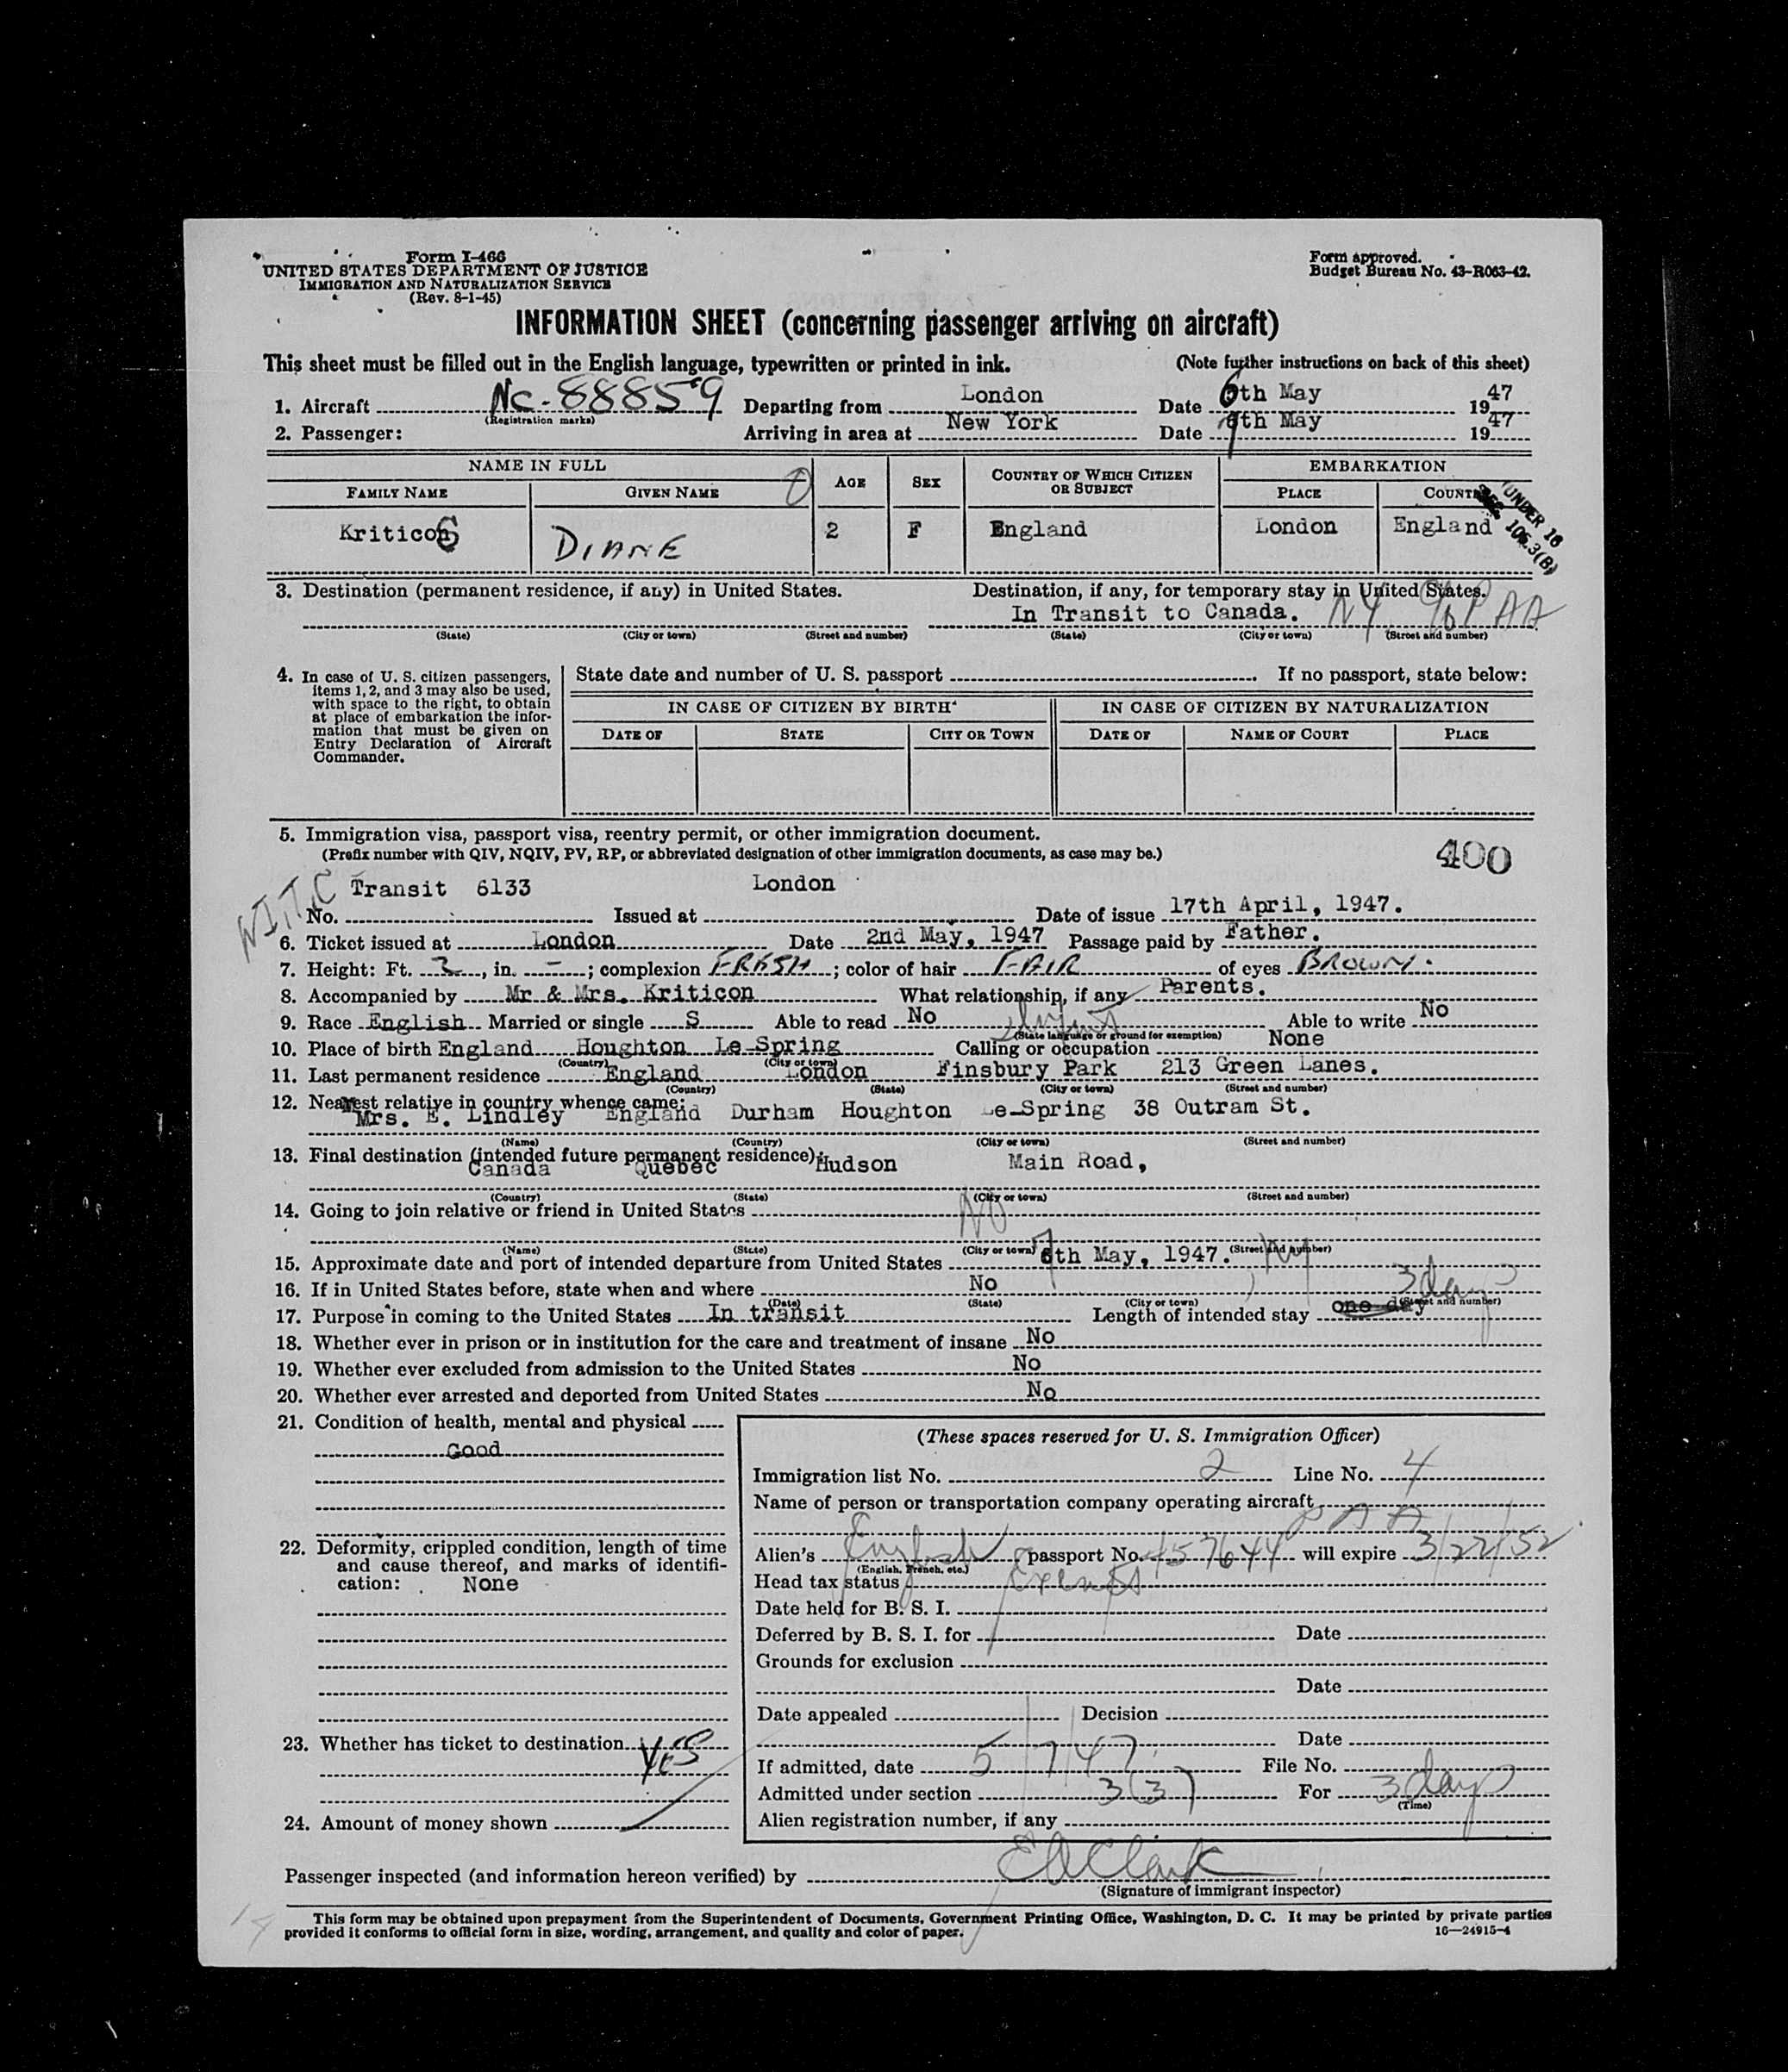 Form I-466
UNITED STATES DEPARTMENT OF JUSTICE
IMMIGRATION AND NATURALIZATION SERVICE
(Rev. 8-1-45)
Form approved.
Budget Bureau No. 43-R063-42.
INFORMATION SHEET (concerning passenger arriving on aircraft)
This sheet must be filled out in the English language, typewritten or printed in ink. (Note further instructions on back of this sheet)
1. Aircraft Nc-88859 Departing from London Date 6th May 1947
(Registration marks)
2. Passenger: Arriving in area at New York Date 7th May 1947
NAME IN FULL AGE SEX COUNTRY OF WHICH CITIZEN OR SUBJECT EMBARKATION
FAMILY NAME GIVEN NAME PLACE COUNTRY
UNDER 16
SEC. 106.3(B)
KriticoS DIANE 2 F England London England
3. Destination (permanent residence, if any) in United States. Destination, if any, for temporary stay in United States.
In Transit to Canada. NY % PAA
(State) (City or town) (Street and number) (State) (City or town) (Street and number)
4. In case of U. S. citizen passengers, items 1, 2, and 3 may also be used, with space to the right, to obtain at place of embarkation the information that must be given on Entry Declaration of Aircraft Commander.
State date and number of U. S. passport If no passport, state below:
IN CASE OF CITIZEN BY BIRTH IN CASE OF CITIZEN BY NATURALIZATION
DATE OF STATE CITY OR TOWN DATE OF NAME OF COURT PLACE
5. Immigration visa, passport visa, reentry permit, or other immigration document.
(Prefix number with QIV, NQIV, PV, RP, or abbreviated designation of other immigration documents, as case may be.)
400
Transit 6133 London
No. Issued at Date of issue 17th April, 1947.
6. Ticket issued at London Date 2nd May, 1947 Passage paid by Father.
7. Height: Ft. 2, in. -; complexion FRESH; color of hair FAIR of eyes BROWN.
8. Accompanied by Mr & Mrs. Kriticon What relationship, if any Parents.
9. Race English Married or single S Able to read No Infant Able to write No
(State language or ground for exemption)
10. Place of birth England Houghton Le-Spring Calling or occupation None
(Country) (City or town)
11. Last permanent residence England London Finsbury Park 213 Green Lanes.
(Country) (State) (City or town) (Street and number)
12. Nearest relative in country whence came:
Mrs. E. Lindley England Durham Houghton Le-Spring 38 Outram St.
(Name) (Country) (City or town) (Street and number)
13. Final destination (intended future permanent residence):
Canada Quebec Hudson Main Road,
(Country) (State) (City or town) (Street and number)
14. Going to join relative or friend in United States NO
(Name) (State) (City or town) (Street and number)
15. Approximate date and port of intended departure from United States 7th May, 1947. NY
16. If in United States before, state when and where No
(Date) (State) (City or town) (Street and number)
17. Purpose in coming to the United States In transit Length of intended stay one day 3 days
18. Whether ever in prison or in institution for the care and treatment of insane No
19. Whether ever excluded from admission to the United States No
20. Whether ever arrested and deported from United States No
21. Condition of health, mental and physical
Good
22. Deformity, crippled condition, length of time and cause thereof, and marks of identification: None
23. Whether has ticket to destination YES
24. Amount of money shown
(These spaces reserved for U. S. Immigration Officer)
Immigration list No. 2 Line No. 4
Name of person or transportation company operating aircraft
PAA
Alien's English passport No. 457644 will expire 3/22/52
(English, French, etc.)
Head tax status Exempt
Date held for B. S. I.
Deferred by B. S. I. for Date
Grounds for exclusion
Date
Date appealed Decision
Date
If admitted, date 5/7/47 File No.
Admitted under section 3(3) For 3 days
(Time)
Alien registration number, if any
Passenger inspected (and information hereon verified) by E A Clark
(Signature of immigrant inspector)
This form may be obtained upon prepayment from the Superintendent of Documents, Government Printing Office, Washington, D. C. It may be printed by private parties
provided it conforms to official form in size, wording, arrangement, and quality and color of paper.
16—24915-4